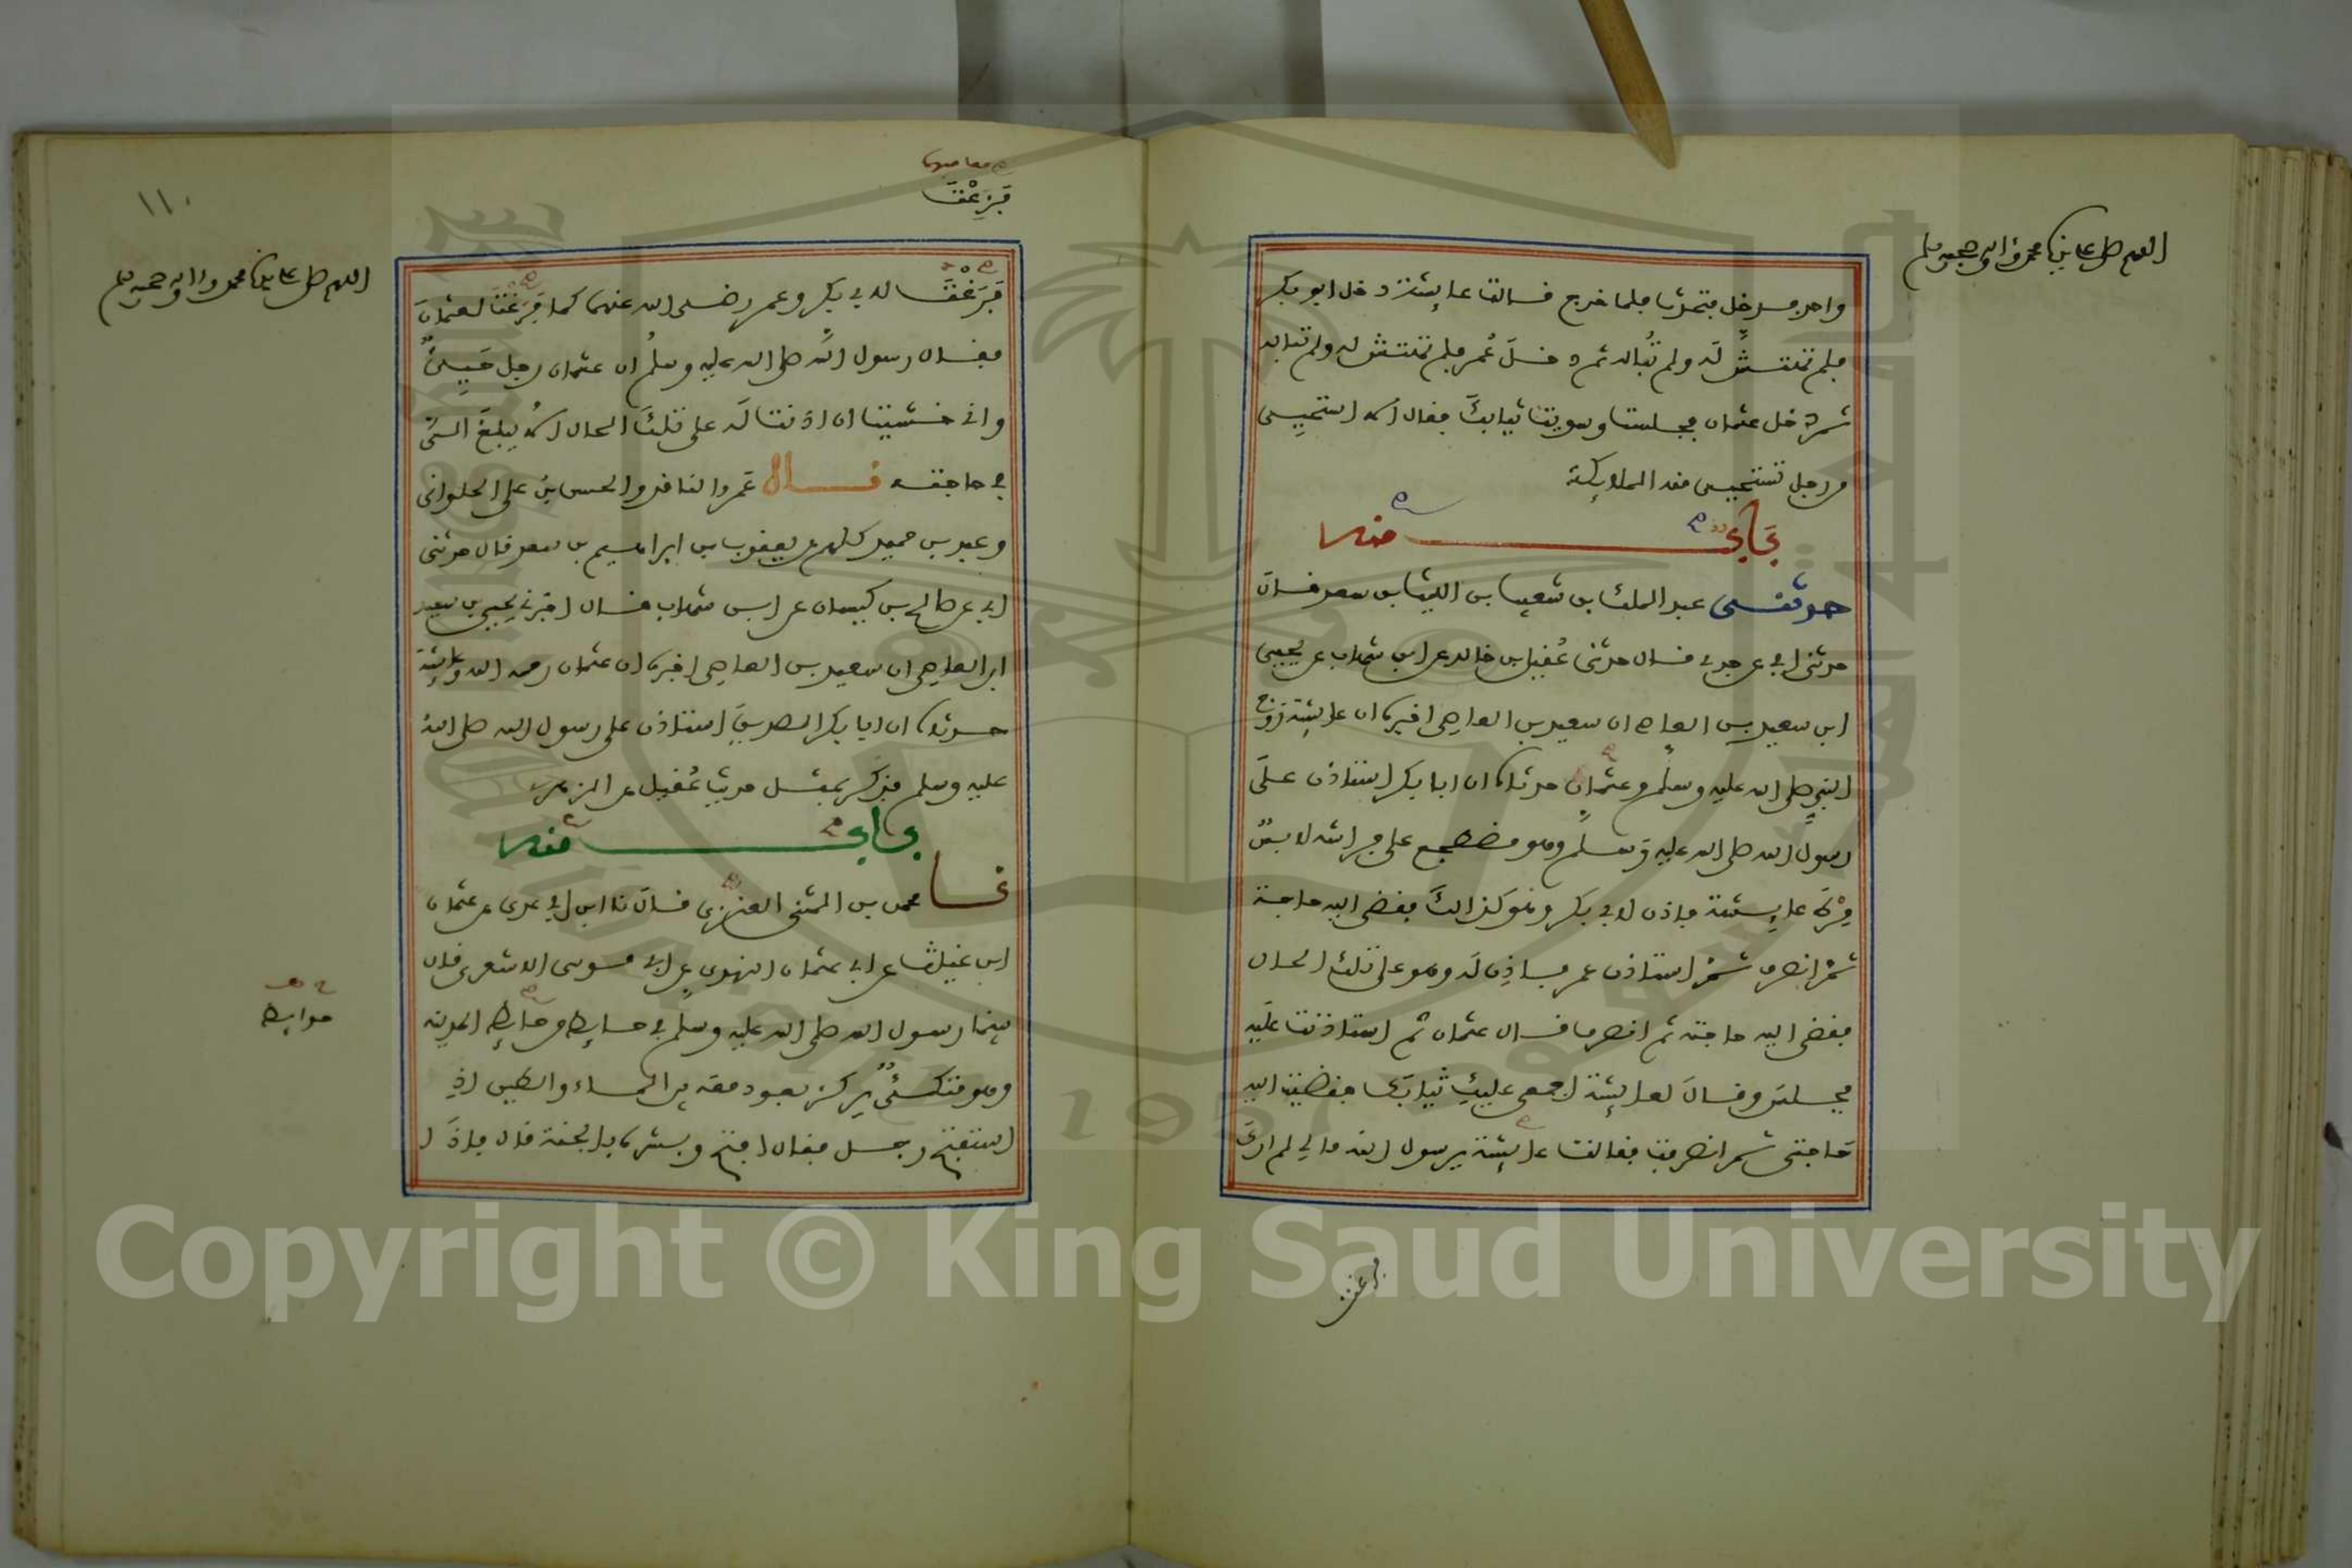 اللهم صل على سيدنا محمد وءاله وصحبه وسلم
واحد فدخل فتحدث فلما خرج قالت عايشة دخل ابو بكر
فلم تهتش له ولم تباله ثم دخل عمر فلم تهتش له ولم تباله
ثم دخل عثمان فجلست وسويت ثيابك فقال الا استحيي
من رجل تستحيي منه الملايكة
باب منه
حدثني عبد الملك بن شعيب بن الليث بن سعد قال
حدثني ابي عن جدي قال حدثني عقيل بن خالد عن ابن شهاب عن يحيى
ابن سعيد بن العاص ان سعيد بن العاصي اخبره ان عايشة زوج
النبي صلى الله عليه وسلم وعثمان حدثاه ان ابا بكر استاذن على
رسول الله صلى الله عليه وسلم وهو مضطجع على فراشه لابس
مرط عايشة فاذن لابي بكر وهو كذالك فقضى اليه حاجته
ثم انصرف ثم استاذن عمر فاذن له وهو على تلك الحال
فقضى اليه حاجته ثم انصرف قال عثمان ثم استاذنت عليه
فجلس وقال لعايشة اجمعي عليك ثيابك فقضيت اليه
حاجتي ثم انصرفت فقالت عايشة يرسول الله ما لي لم ارك
فزعت
١١٠
اللهم صل على سيدنا محمد وءاله وصحبه وسلم
فزعت
فزعت لابي بكر وعمر رضي الله عنهما كما فزعت لعثمان
فقال رسول الله صلى الله عليه وسلم ان عثمان رجل حيي
واني خشيت ان اذنت له على تلك الحال الا يبلغ الي
في حاجته قال عمرو الناقد والحسن بن علي الحلواني
وعبد بن حميد كلهم عن يعقوب بن ابراهيم بن سعد قال حدثني
ابي عن صالح بن كيسان عن ابن شهاب قال اخبرني يحيى بن سعيد
ابن العاصي ان سعيد بن العاصي اخبره ان عثمان رحمه الله وعايشة
حدثاه ان ابا بكر الصديق استاذن على رسول الله صلى الله
عليه وسلم فذكر بمثل حديث عقيل عن الزهري
باب منه
نا محمد بن المثنى العنزي قال نا ابن ابي عدي عن عثمان
ابن غياث عن ابي عثمان النهدي عن ابي موسى الاشعري قال
بينما رسول الله صلى الله عليه وسلم في حايط من حايط المدينة
وهو متكئ يركز بعود معه بين الماء والطين اذ
استفتح رجل فقال افتح وبشره بالجنة قال فاذا
حوايط